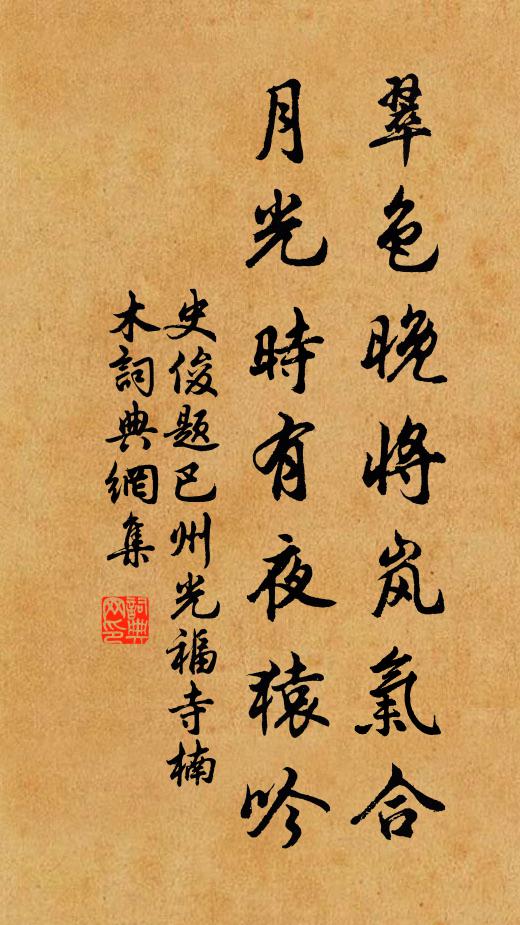 翠色晚將岚氣合
月光時有夜猿吟
史俊題巴州光福寺楠
木詞典網集
詞典
网印